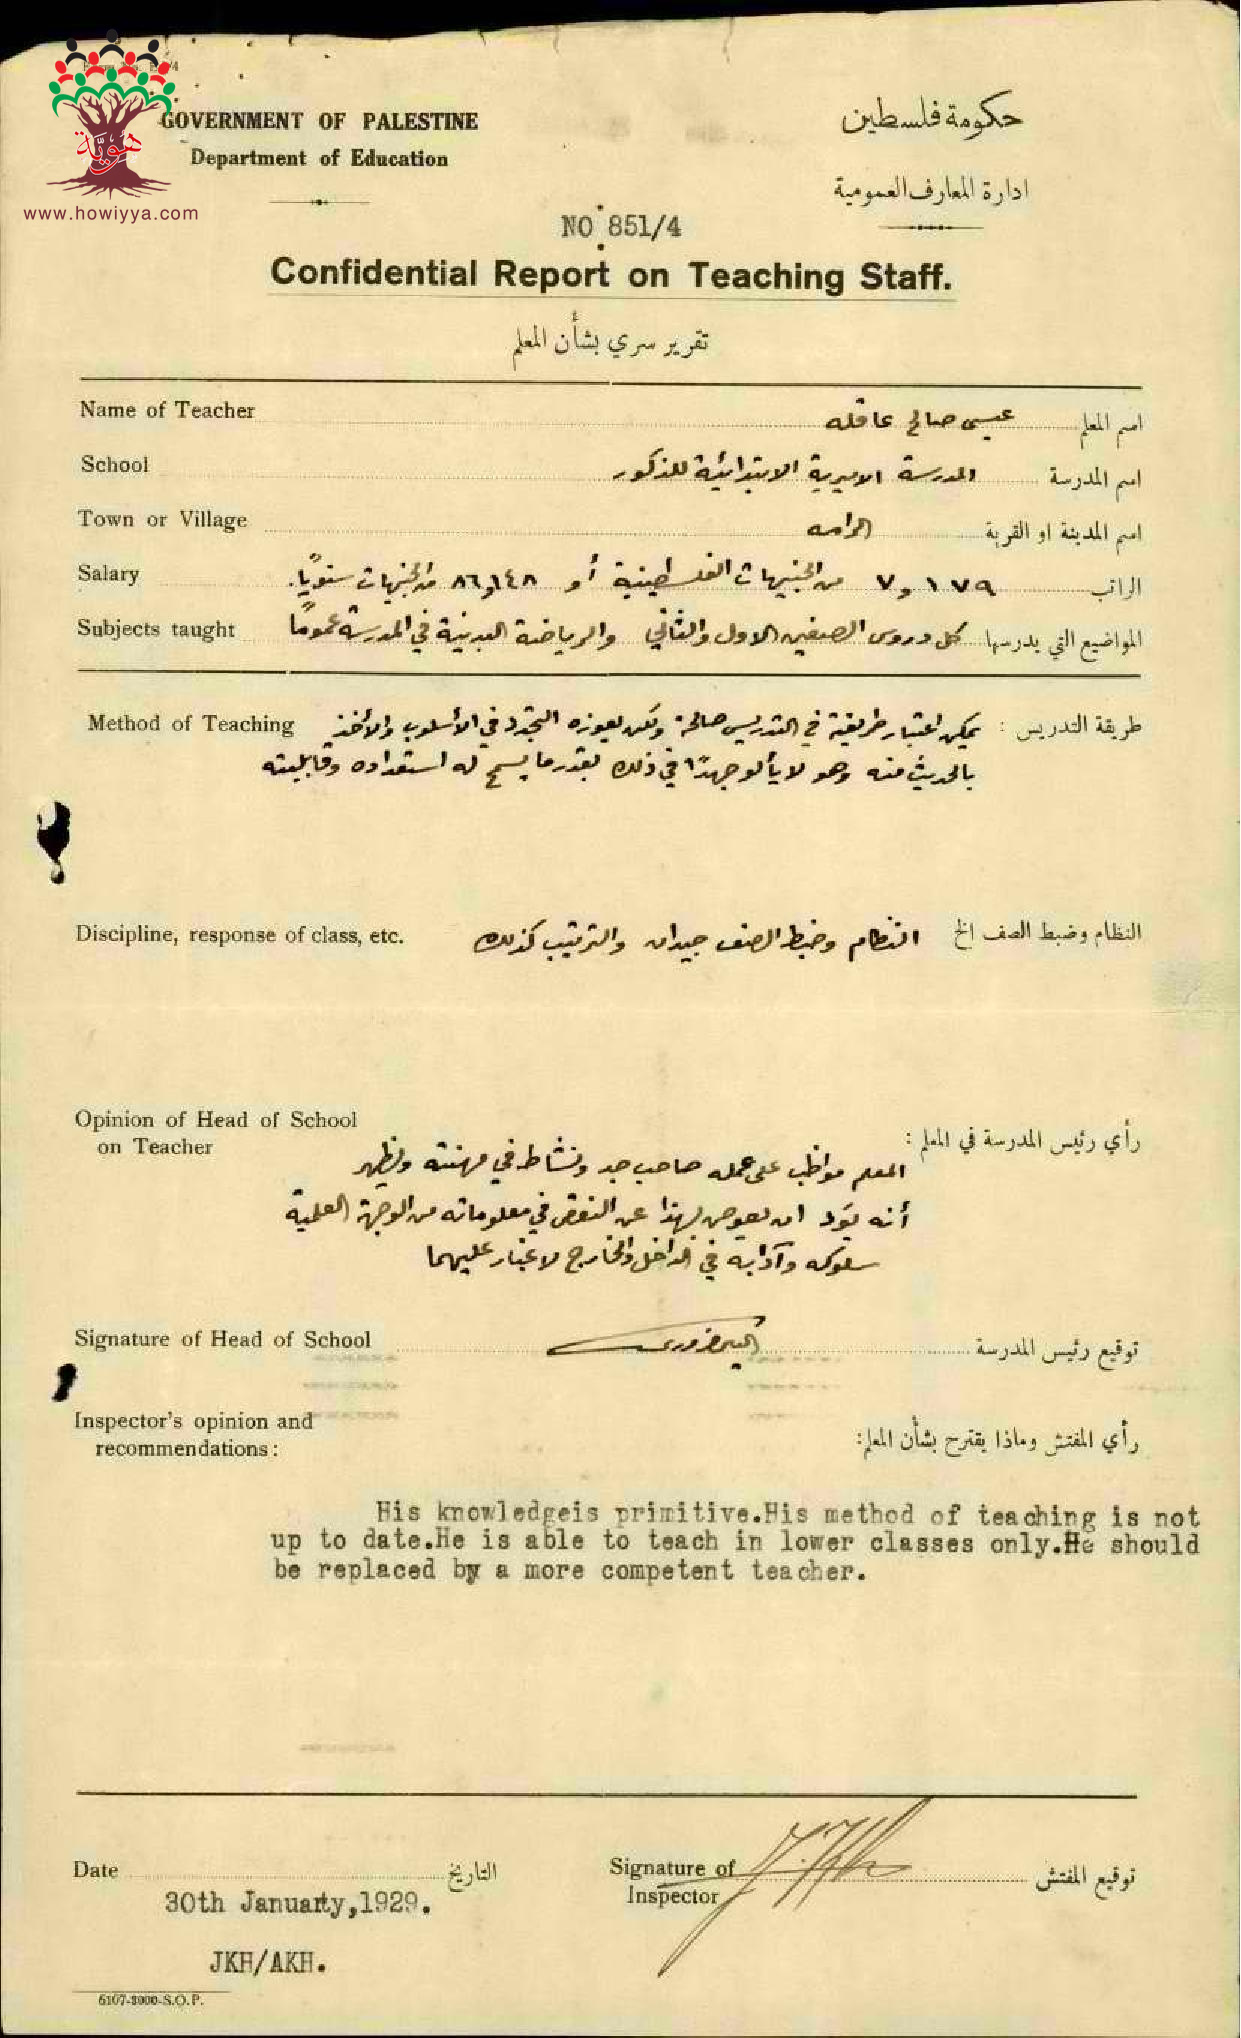 هويّة
www.howiyya.com
GOVERNMENT OF PALESTINE
Department of Education
حكومة فلسطين
ادارة المعارف العمومية
NO 851/4
Confidential Report on Teaching Staff.
تقرير سري بشأن المعلم
Name of Teacher عيسى صالح عاقله اسم المعلم
School المدرسة الاميرية الابتدائية للذكور اسم المدرسة
Town or Village الرامه اسم المدينة او القرية
Salary ٧,١٧٩ من الجنيهات الفلسطينية أو ٨٦,١٤٨ من الجنيهات سنويًا. الراتب
Subjects taught كل دروس الصفين الاول والثاني والرياضة البدنية في المدرسة عمومًا المواضيع التي يدرسها
Method of Teaching يمكن اعتبار طريقته في التدريس صالحة ولكن يعوزه التجدد في الأسلوب والأخذ طريقة التدريس :
بالحديث منه وهو لا يألو جهدًا في ذلك بقدر ما يسمح له استعداده وقابليته
Discipline, response of class, etc. النظام وضبط الصف جيدان والترتيب كذلك النظام وضبط الصف الخ
Opinion of Head of School
on Teacher
رأي رئيس المدرسة في المعلم :
المعلم مواظب على عمله صاحب جد ونشاط في مهنته ويظهر
أنه يود ان يعوض بهذا عن النقص في معلوماته من الوجهة العلمية
سلوكه وآدابه في الداخل والخارج لا غبار عليهما
Signature of Head of School توقيع رئيس المدرسة
Inspector's opinion and
recommendations :
رأي المفتش وماذا يقترح بشأن المعلم:
His knowledgeis primitive.His method of teaching is not
up to date.He is able to teach in lower classes only.He should
be replaced by a more competent teacher.
Date التاريخ
30th January,1929.
Signature of
Inspector
توقيع المفتش
JKH/AKH.
6107-1000-S.O.P.